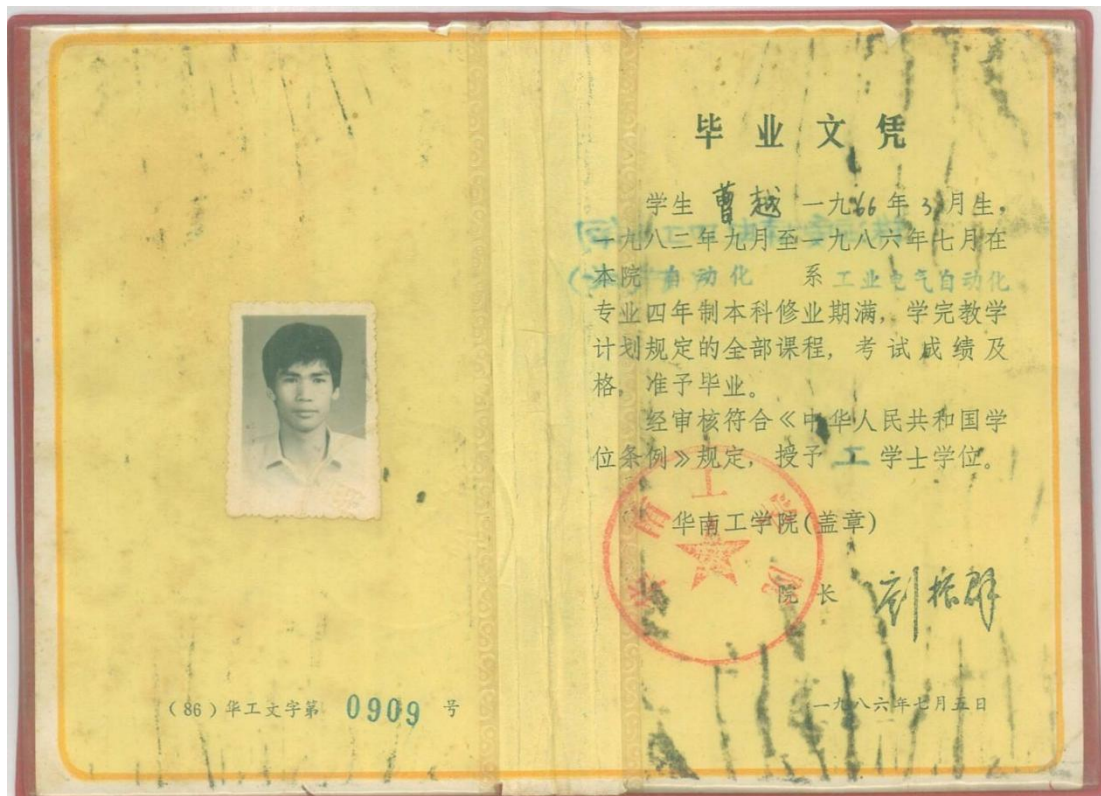 毕业文凭
学生 曹越 一九66年3月生,
一九八二年九月至一九八六年七月在
本院 自动化 系 工业电气自动化
专业四年制本科修业期满, 学完教学
计划规定的全部课程, 考试成绩及
格, 准予毕业。
经审核符合《中华人民共和国学
位条例》规定, 授予 工 学士学位。
华南工学院(盖章)
华南工学院
院长 刘振群
一九八六年七月五日
(86)华工文字第 0909 号